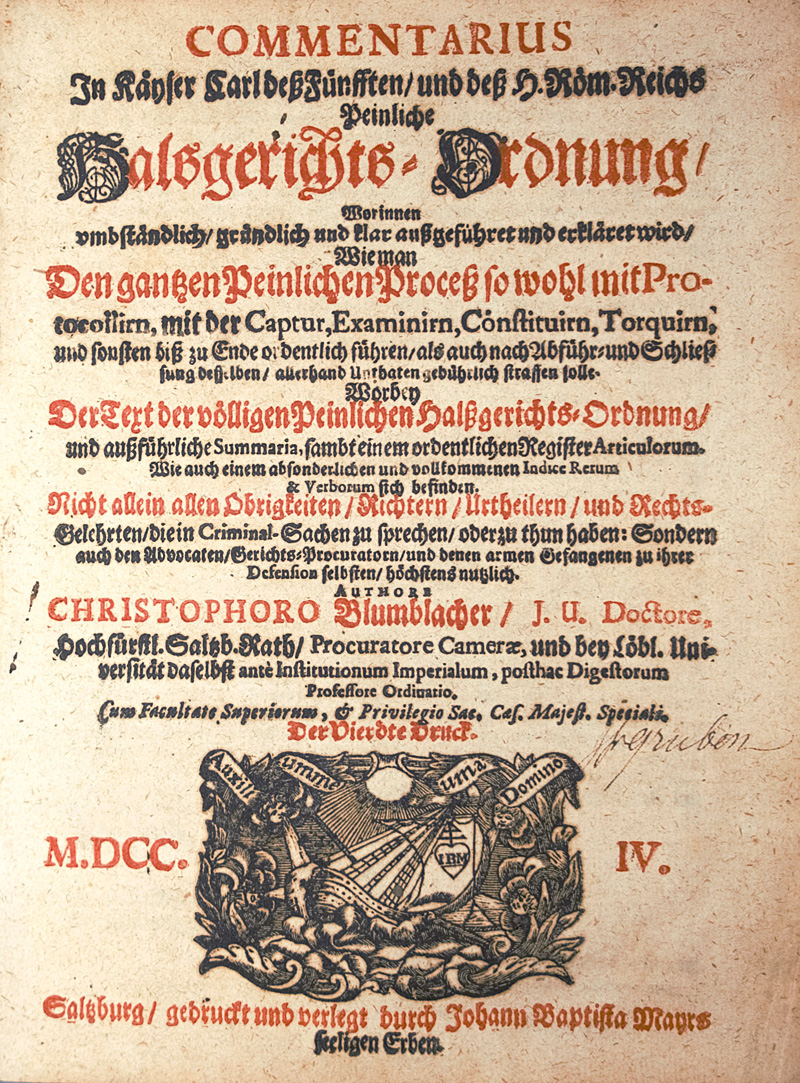 COMMENTARIUS
In Käyser Carl deß Fünfften/ und deß H. Röm. Reichs
Peinliche
Halsgerichts-Ordnung/
Worinnen
vmbständlich/ gründlich und klar außgeführet und erkläret wird/
Wie man
Den gantzen Peinlichen Proceß so wohl mit Pro-
tocollirn, mit der Captur, Examinirn, Constituirn, Torquirn,
und sonsten biß zu Ende ordentlich führen/ als auch nach Abführ- und Schließ
sung desselben/ allerhand Unthaten gebührlich straffen solle.
Worbey
Der Text der völligen Peinlichen Halßgerichts-Ordnung/
und außführliche Summaria, sambt einem ordentlichen Register Articulorum.
Wie auch einem absonderlichen und vollkommenen Indice Rerum
& Verborum sich befinden.
Nicht allein allen Obrigkeiten/ Richtern/ Urtheilern/ und Rechts-
Gelehrten/ die in Criminal-Sachen zu sprechen/ oder zu thun haben: Sondern
auch den Advocaten/ Gerichts-Procuratorn/ und denen armen Gefangenen zu ihrer
Defension selbsten/ höchstens nutzlich.
AUTHORE
CHRISTOPHORO Blumblacher/ J. U. Doctore,
Hochfürstl. Saltzb. Rath/ Procuratore Cameræ, und bey Löbl. Uni-
versität daselbst antè Institutionum Imperialum, posthac Digestorum
Professore Ordinario.
Cum Facultate Superiorum, & Privilegio Sac. Cæs. Majest. Speciali.
Der Vierdte Druck.
Auxilium summe
uma Domino
IBM
M.DCC. IV.
Saltzburg/ gedruckt und verlegt durch Johann Baptista Mayrs
seeligen Erben.